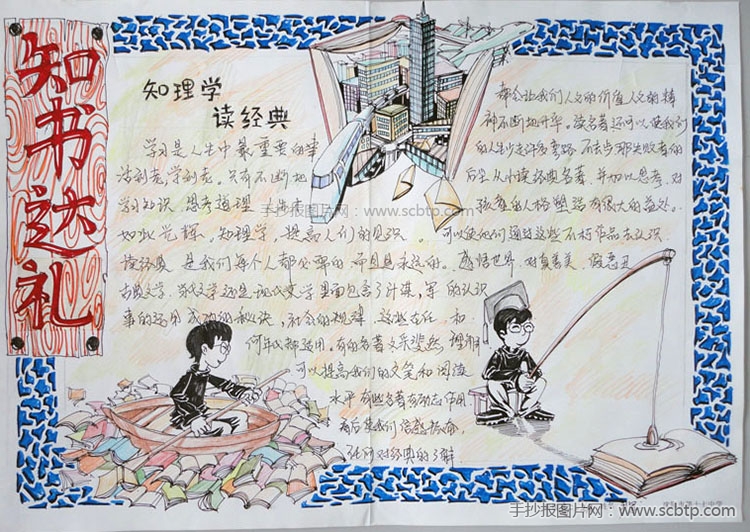 知书达礼
知理学
读经典
学习是人生中最重要的事
活到老,学到老。只有不断地
学习知识,思考道理
如此光辉。知理学,提高人们的见识
读经典,是我们每个人都必要的,而且是永远的。
古典文学,当代文学还是现代文学里面包含了计谋,军
事的运用,成功的秘诀,社会的规律,这些在任
何年代都适用。有的名著文采斐然
可以提高我们的文笔和阅读
水平,有些名著有励志作用
都会让我们人文的价值,人文的精
神不断地升华。读名著还可以使我们
的人生少走许多弯路,不去步那失败者的
后尘,从小读经典名著,并加以思考,对
孩童的人格塑造有很大的益处。
可以使他们通过这些不朽作品去认识
感悟世界,对真善美,假恶丑
的认识
手抄报图片网:www.scbtp.com
手抄报图片网:www.scbtp.com